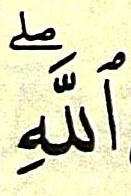 ٱللَّهِۖ